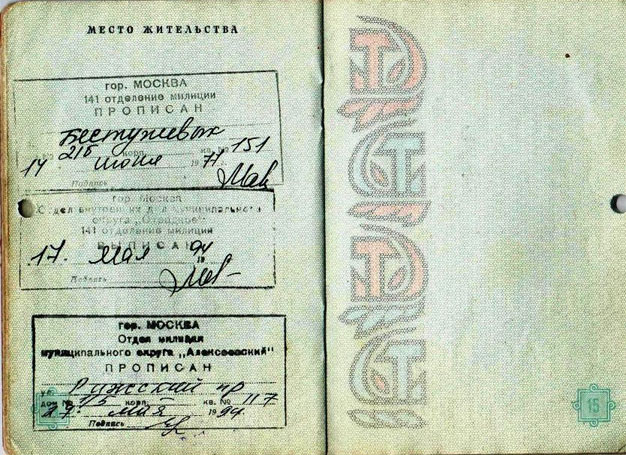 МЕСТО ЖИТЕЛЬСТВА
гор. МОСКВА
141 отделение милиции
ПРОПИСАН
Бестужевых
21Б корп. кв. № 151
14 июня 1971 г.
Подпись
гор. Москва
Отдел внутренних дел муниципального
округа „Отрадное"
141 отделение милиции
ВЫПИСАН
17. мая 1994
Подпись
гор. МОСКВА
Отдел милиции
муниципального округа „Алексеевский"
ПРОПИСАН
ул. Рижский пр
дом № корп. кв. № 117
27. мая 1994.
Подпись
15